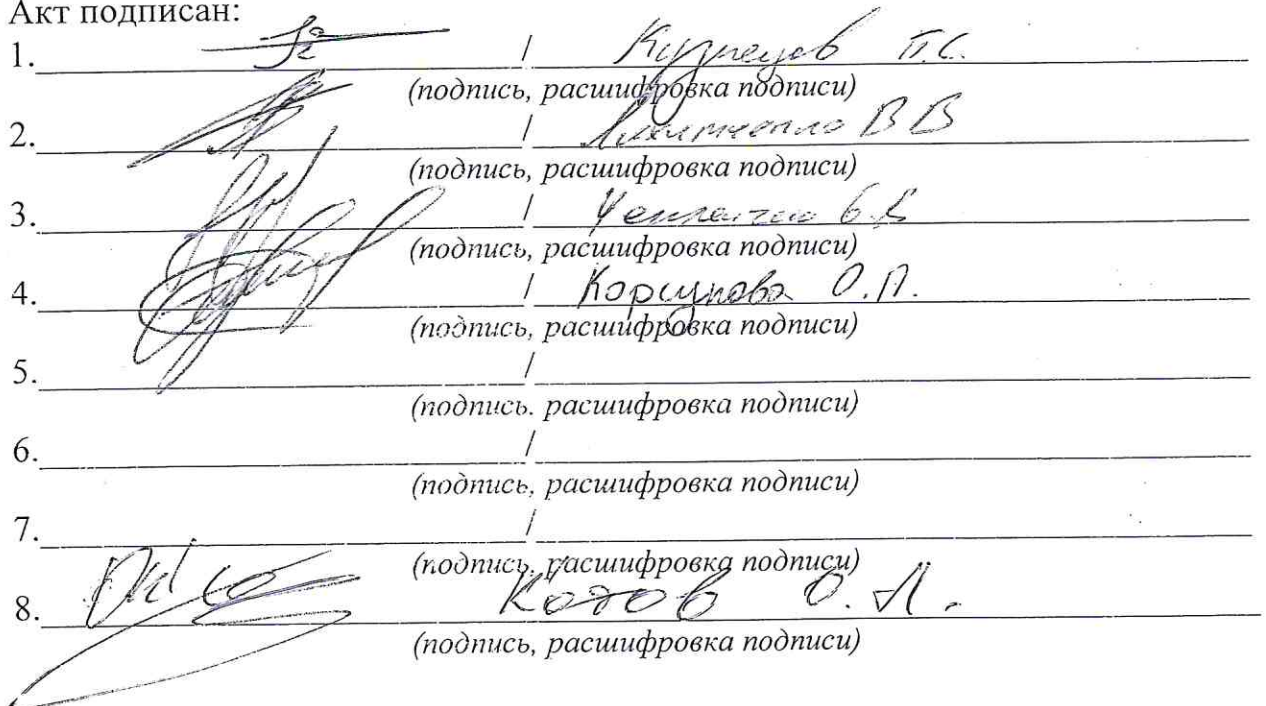 Акт подписан:
1. / Кузнецов П.С.
(подпись, расшифровка подписи)
2. / В В
(подпись, расшифровка подписи)
3. /
(подпись, расшифровка подписи)
4. / Корсунова О.П.
(подпись, расшифровка подписи)
5. /
(подпись, расшифровка подписи)
6. /
(подпись, расшифровка подписи)
7. /
(подпись, расшифровка подписи)
8. Котов О. Л.
(подпись, расшифровка подписи)